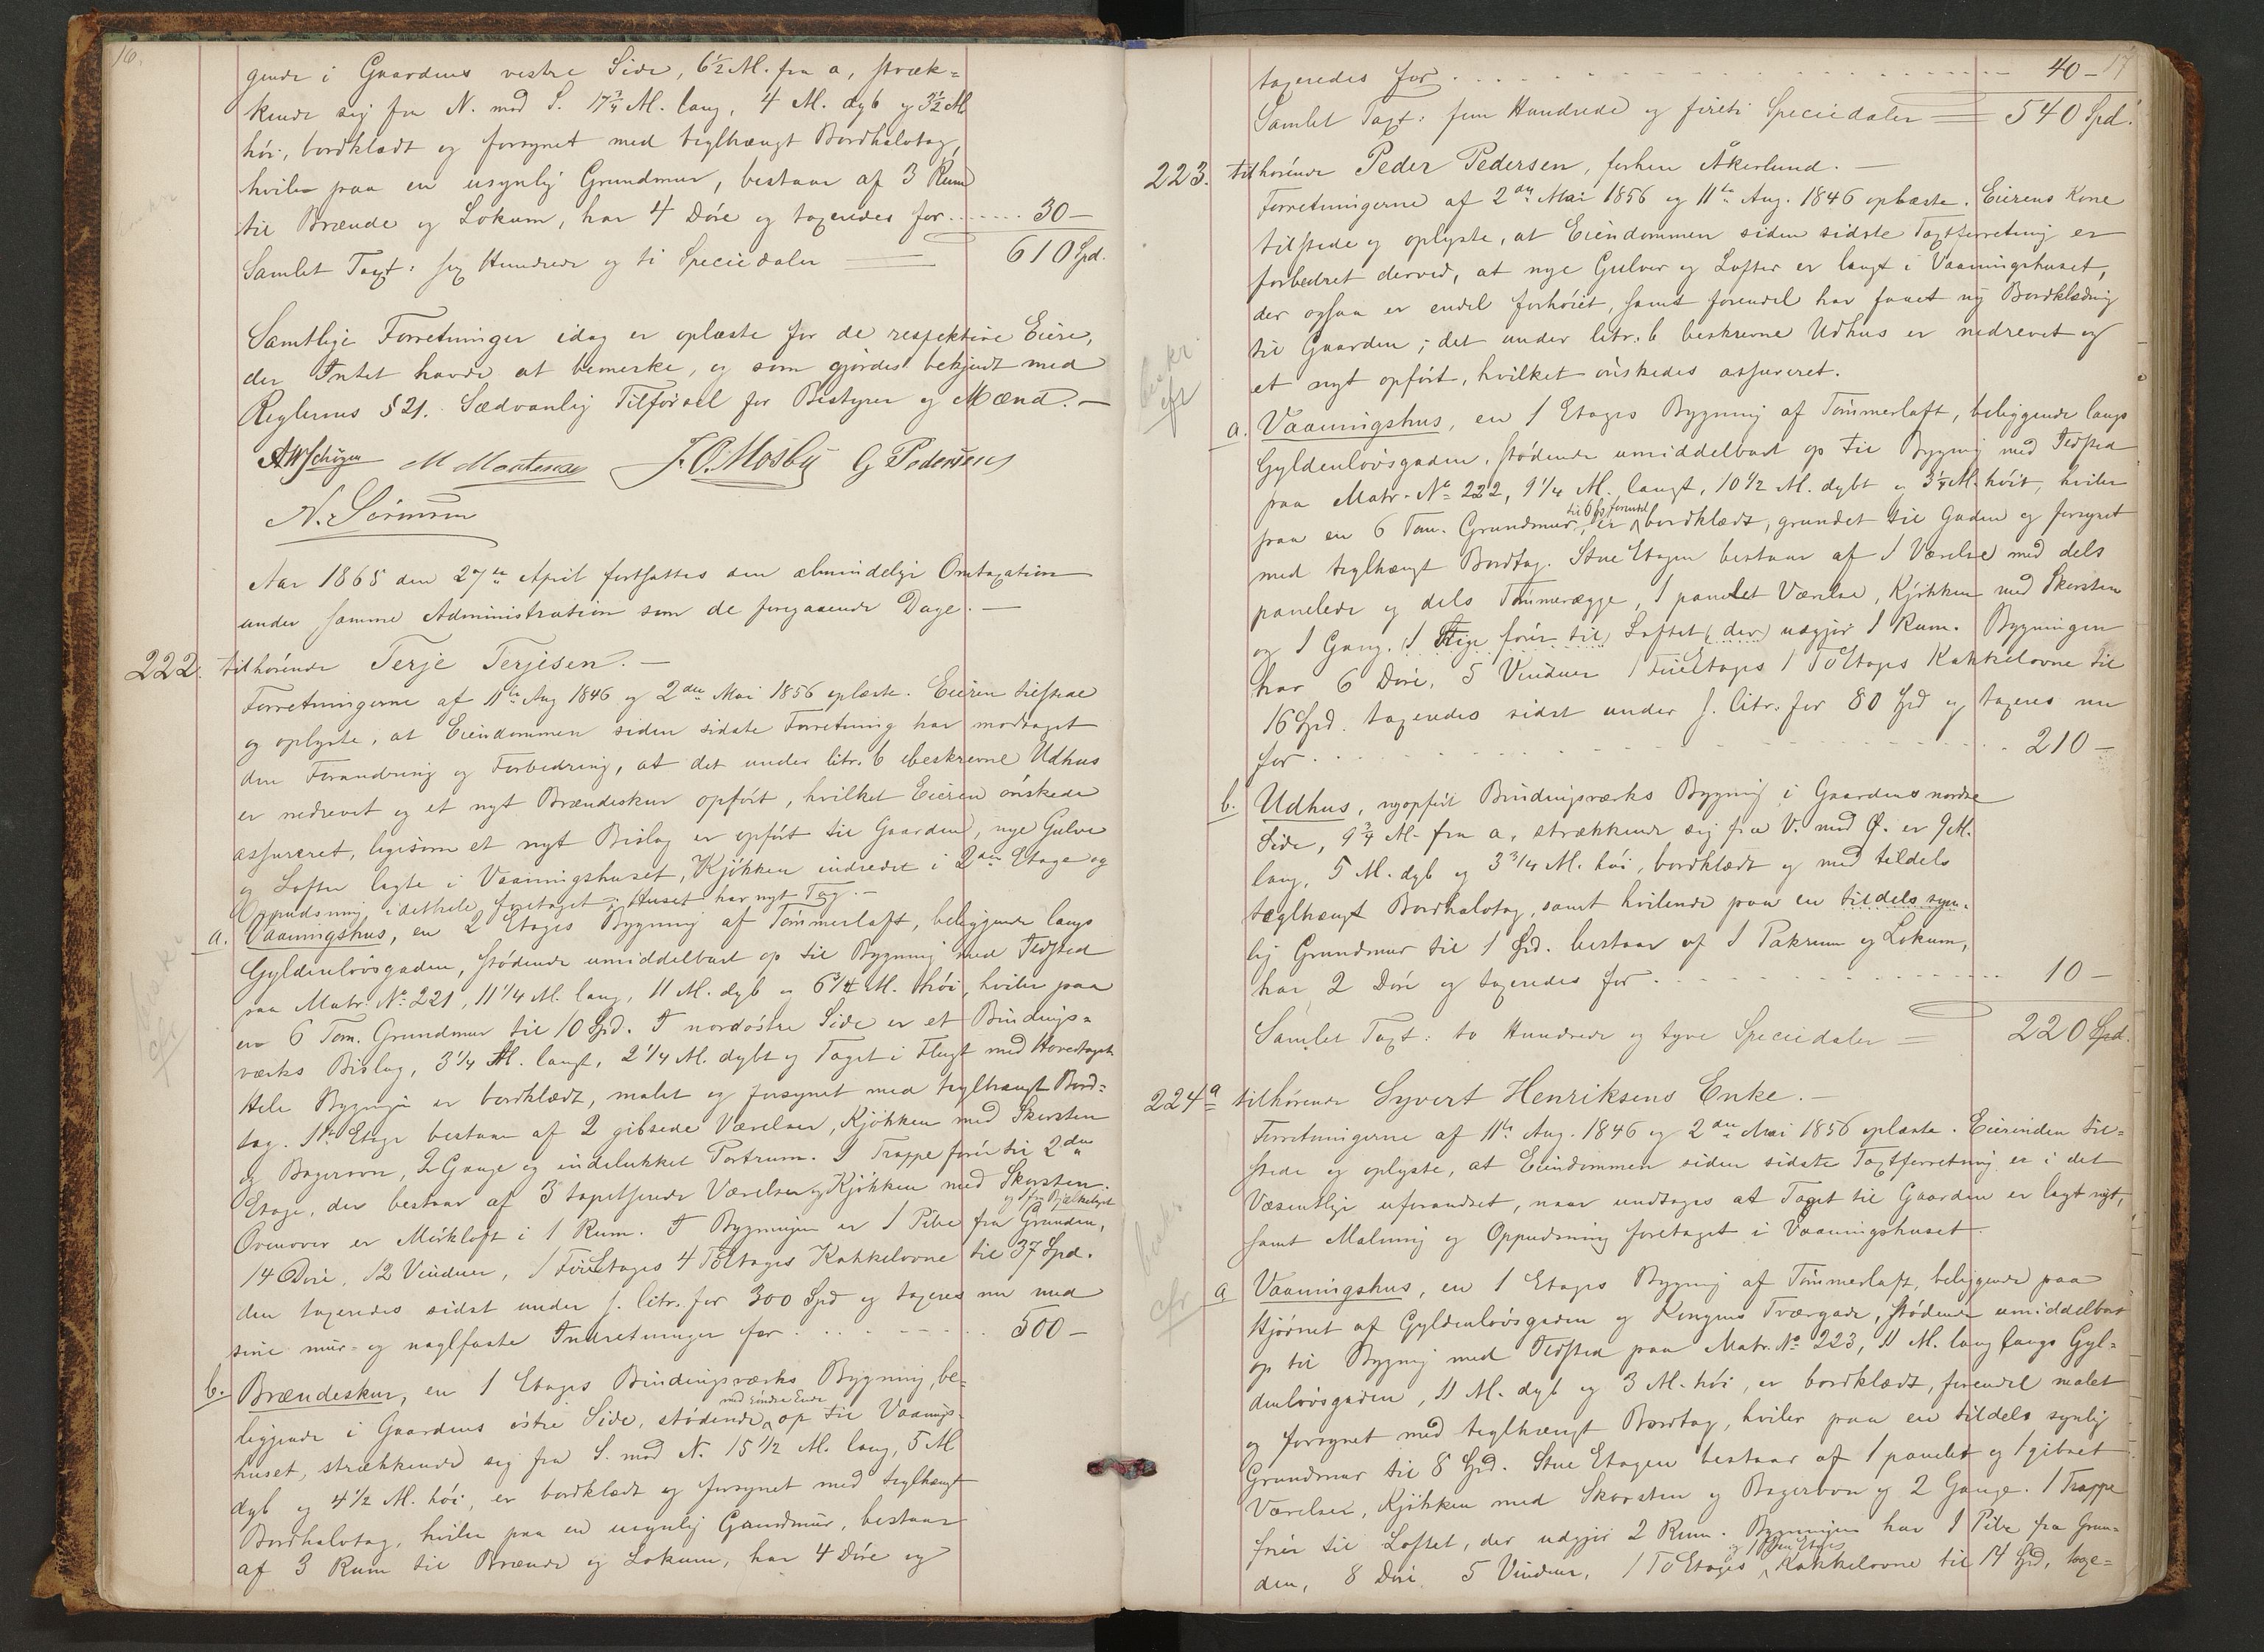 16.
gende i Gaardens vestre Side, 6½ Al. fra a, stræk-
kende sig fra N. mod S. 17¾ Al. lang, 4 Al. dyb og 3½ Al
höi, bordklædt og forsynet med teglhængt Bordhalvtag,
hviler paa en usynlig Grundmur, bestaar af 3 Rum
til Brænde og Lokum, har 4 Döre og taxeredes for ...... 30 —
Samlet Taxt: sex Hundrede og ti Speciedaler = 610 Spd.
Samtlige Forretninger idag er oplæste for de respektive Eiere,
der Intet havde at bemerke, og som gjördes bekjendt med
Reglernes § 21. Sædvanlig Tilförsel for Bestyrer og Mænd. —
M Mortensen J. O. Mosby G Pedersen
N. Sörensen
Aar 1865 den 27de April fortsattes den almindelige Omtaxation
under samme Administration som de foregaaende Dage. —
222. tilhörende Terje Terjesen. —
Forretningerne af 11te Aug 1846 og 2den Mai 1856 oplæste. Eieren tilstede
og oplyste, at Eiendommen siden sidste Forretning har modtaget
den Forandring og Forbedring, at det under litr. b beskrevne Udhus
er nedrevet og et nyt Brændeskur opfört, hvilket Eieren önskede
assureret, ligesom et nyt Bislag er opfört til Gaarden, nye Gulve
og Lofter lagte i Vaaningshuset, Kjökken indredet i 2den Etage og
Oppudsning idethele foretaget; Huset har nyt Tag. —
a. Vaaningshus, en 2 Etages Bygning af Tömmerlaft, beliggende langs
Gyldenlövsgaden, stödende umiddelbart op til Bygning med Ildsted
paa Matr. No 221, 11¼ Al. lang, 11 Al. dyb og 6¾ Al. höi, hviler paa
en 6 Tom. Grundmur til 10 Spd. I nordöstre Side er et Bindings-
værks Bislag, 3¼ Al. langt, 2¼ Al. dybt og Taget i Flugt med Hovedtaget.
Hele Bygningen er bordklædt, malet og forsynet med teglhængt Bord-
tag. 1ste Etage bestaar af 2 gibsede Værelser, Kjökken med Skorsten
og Bagerovn, 2 Gange og indelukket Portrum. 1 Trappe förer til 2den
Etage, der bestaar af 3 tapetserede Værelser og Kjökken med Skorsten.
Ovenover er Mörkloft i 1 Rum. I Bygningen er 1 Pibe fra Grunden, og 1 fra Bjælkelaget
14 Döre, 12 Vinduer, 1 FireEtages 4 ToEtages Kakkelovne til 37 Spd.
den taxeredes sidst under s. litr. for 300 Spd og taxeres nu med
sine mur- og naglfaste Indretninger for ........ 500 —
b. Brændeskur, en 1 Etages Bindingsværks Bygning, be-
liggende i Gaardens östre Side, stödende med söndre Ende op til Vaanings-
huset, strækkende sig fra S. mod N. 15½ Al. lang, 5 Al
dyb og 4½ Al. höi, er bordklædt og forsynet med teglhængt
Bordhalvtag, hviler paa en usynlig Grundmur, bestaar
af 3 Rum til Brænde og Lokum, har 4 Döre og
17
taxeredes for ........ 40 —
Samlet Taxt: fem Hundrede og fireti Speciedaler = 540 Spd.
223. tilhörende Peder Pedersen, forhen Åkerlund. —
Forretningerne af 2den Mai 1856 og 11te Aug. 1846 oplæste. Eierens Kone
tilstede og oplyste, at Eiendommen siden sidste Taxtforretning er
forbedret derved, at nye Gulver og Lofter er lagt i Vaaningshuset,
der ogsaa er endel forhöiet, samt forendel har faaet ny Bordklædning
til Gaarden; det under litr. b beskrevne Udhus er nedrevet og
et nyt opfört, hvilket önskedes assureret.
a. Vaaningshus, en 1 Etages Bygning af Tömmerlaft, beliggende langs
Gyldenlövsgaden, stödende umiddelbart op til Bygning med Ildsted
paa Matr. No 222, 9¼ Al. langt, 10½ Al. dybt og 3¾ Al. höit, hviler
paa en 6 Tom. Grundmur til 6 Spd, er forendel bordklædt, grundet til Gaden og forsynet
med teglhængt Bordtag. StueEtagen bestaar af 1 Værelse med dels
panelede og dels Tömmervægge, 1 panelet Værelse, Kjökken med Skorsten
og 1 Gang. 1 Stige förer til Loftet (der) udgjör 1 Rum. Bygningen
har 6 Döre, 5 Vinduer 1 FireEtages 1 ToEtages Kakkelovne til
16 Spd. taxeredes sidst under s. litr. for 80 Spd og taxeres nu
for ........ 210 —
b. Udhus, nyopfört Bindingsværks Bygning i Gaardens nordre
Side, 9¾ Al. fra a, strækkende sig fra V. mod Ö. er 9 Al.
lang, 5 Al. dyb og 3¾ Al. höi, bordklædt og med tildels
teglhængt Bordhalvtag, samt hvilende paa en tildels syn-
lig Grundmur til 1 Spd. bestaar af 1 Pakrum og Lokum,
har 2 Döre og taxeredes for ........ 10 —
Samlet Taxt: to Hundrede og tyve Speciedaler = 220 Spd.
224a tilhörende Syvert Henriksens Enke. —
Forretningerne af 11te Aug. 1846 og 2den Mai 1856 oplæste. Eierinden til-
stede og oplyste, at Eiendommen siden sidste Taxtforretning er i det
Væsentlige uforandret, naar undtages at Taget til Gaarden er lagt nyt,
samt Malning og Oppudsning foretaget i Vaaningshuset.
a Vaaningshus, en 1 Etages Bygning af Tömmerlaft, beliggende paa
Hjörnet af Gyldenlövsgaden og Kongens Tværgade, stödende umiddelbart
op til Bygning med Ildsted paa Matr. No 223, 11 Al. lang langs Gyl-
denlövsgaden, 11 Al. dyb og 3 Al. höi, er bordklædt, forendel malet
og forsynet med teglhængt Bordtag, hviler paa en tildels synlig
Grundmur til 8 Spd. StueEtagen bestaar af 1 panelet og 1 gibset
Værelser, Kjökken med Skorsten og Bagerovn og 2 Gange. 1 Trappe
förer til Loftet, der udgjör 2 Rum. Bygningen har 1 Pibe fra Grun-
den, 8 Döre 5 Vinduer, 1 ToEtages Kakkelovne til 14 Spd, taxe-